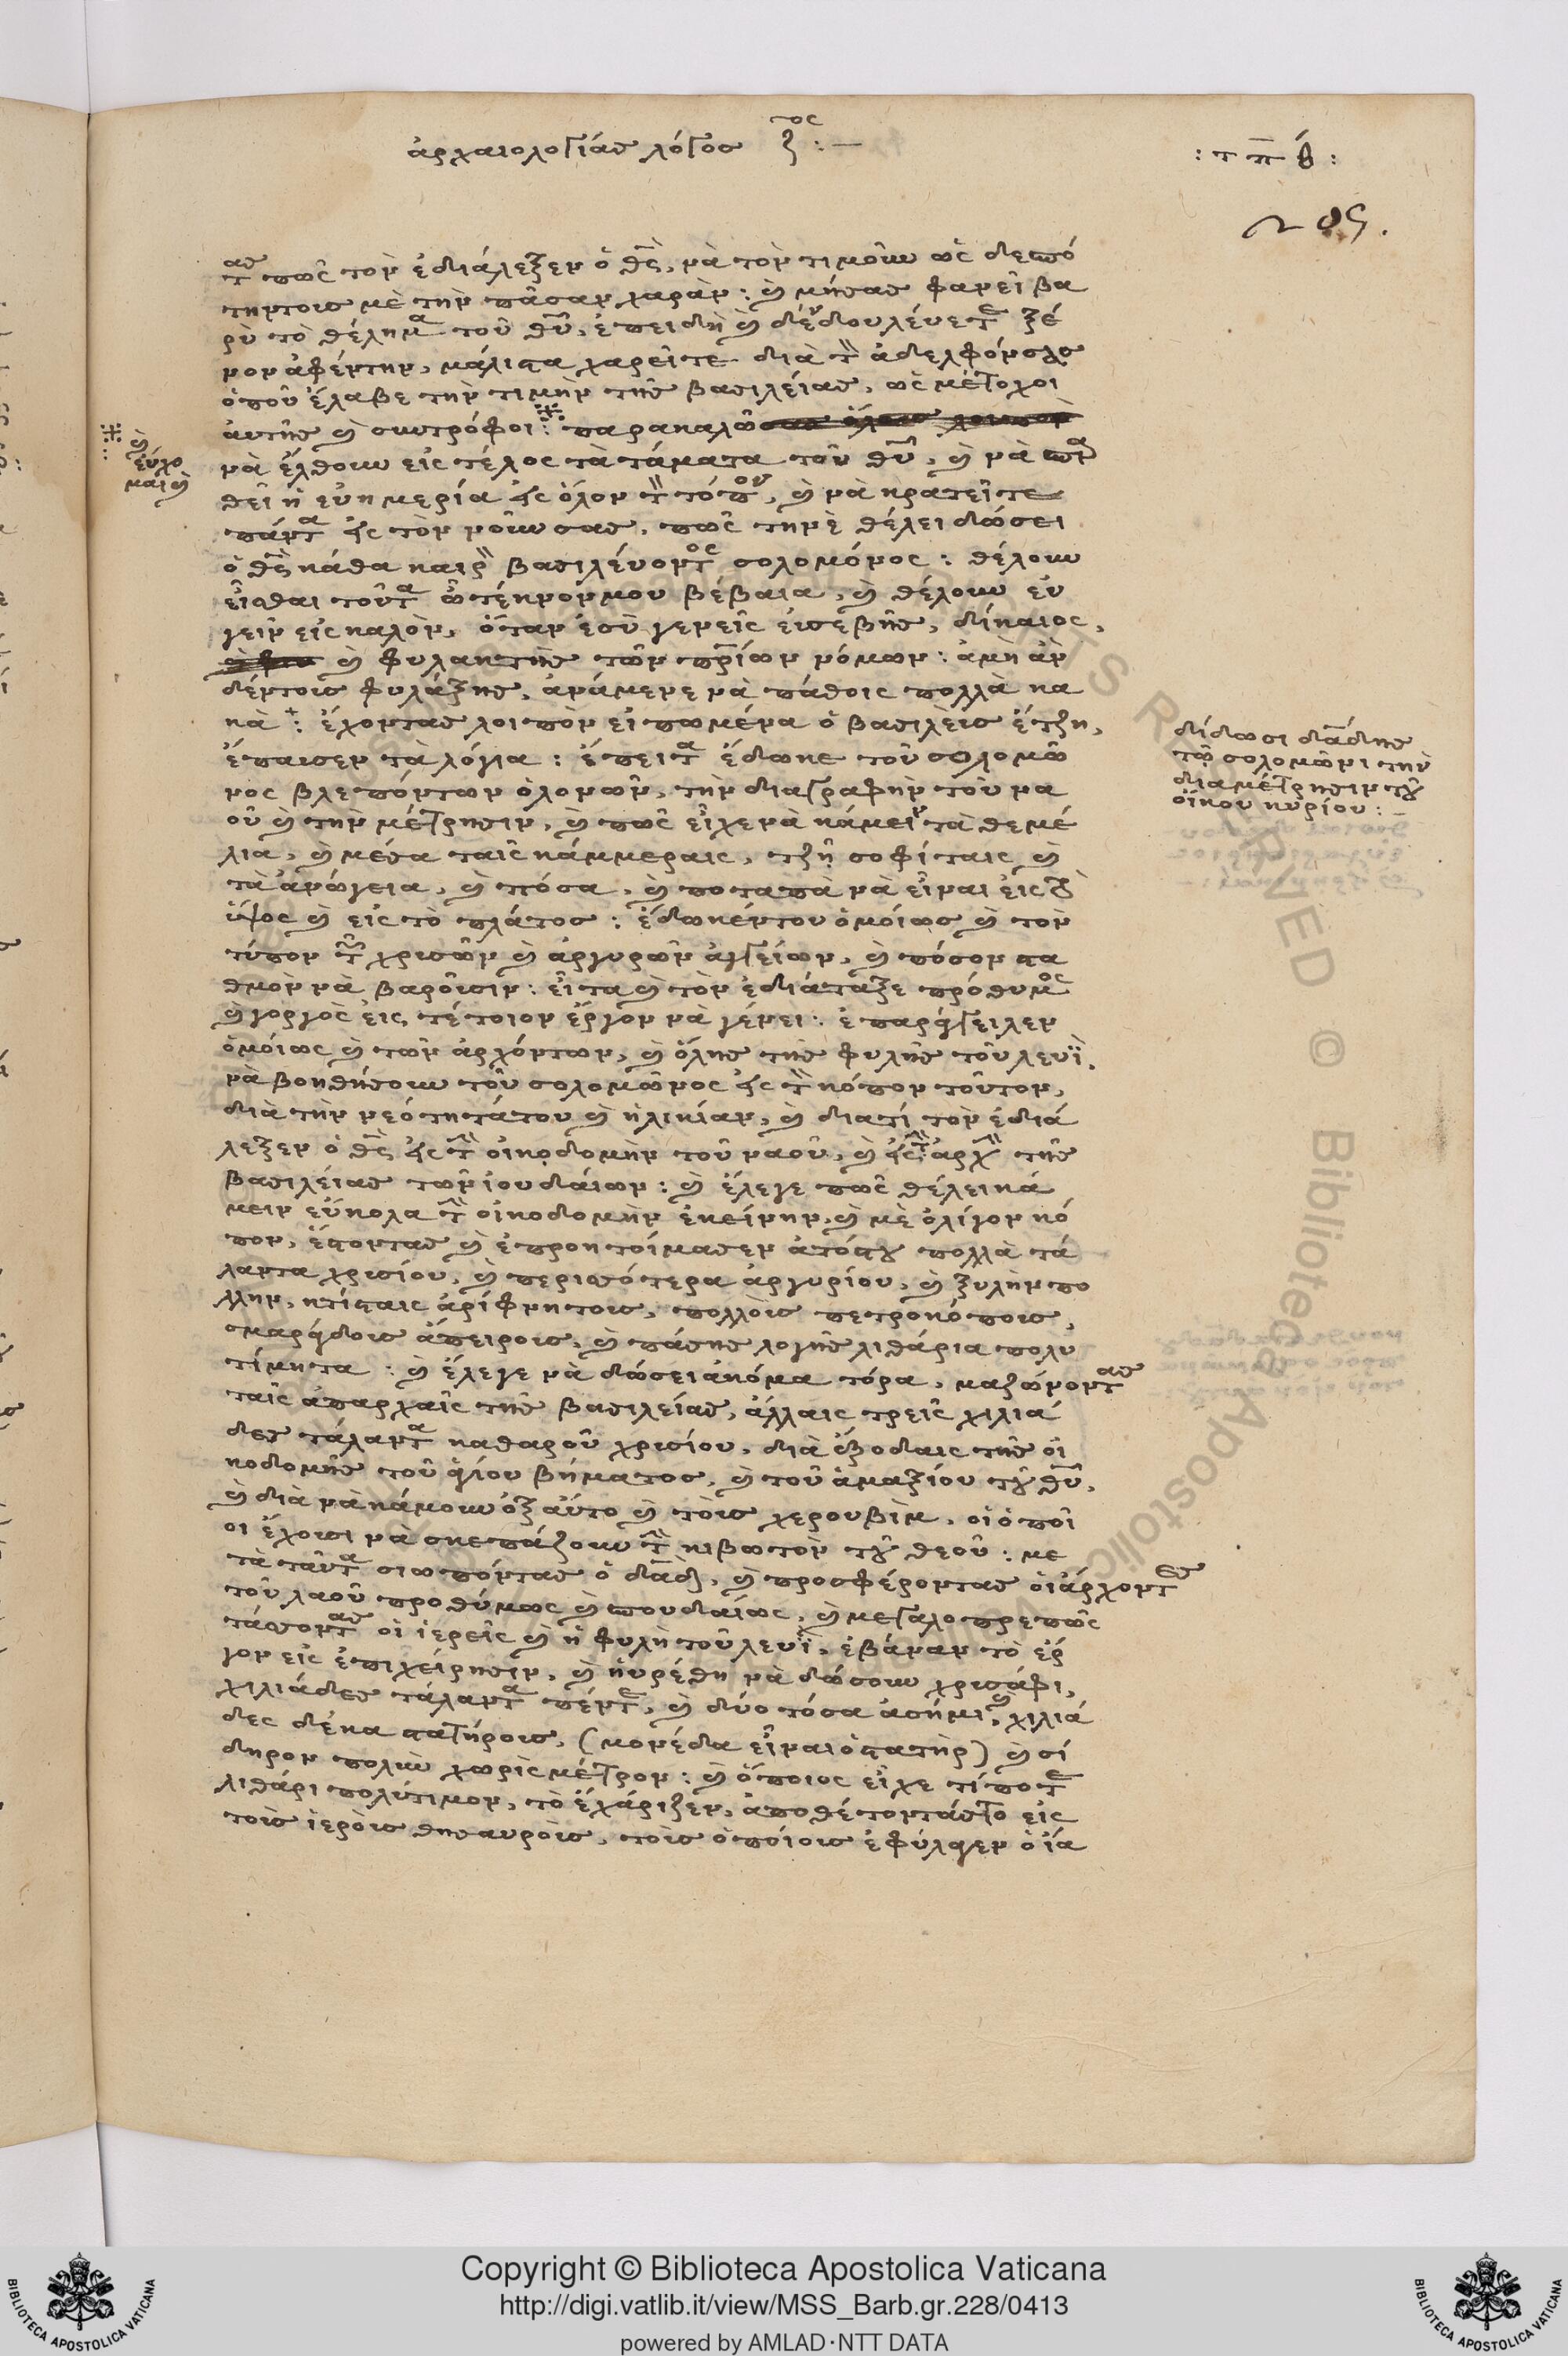 ἀρχαιολογίας λόγος ζ^ος : —
: τπβ́ :
206.
τ^ας πῶς τὸν ἐδιάλεξεν ὁ θς̅, νὰ τὸν τιμοῦν ὡς δεσπό
την τοις μὲ τὴν πᾶσαν χαράν : ϗ μήσας φανεῖ βα
ρὺ τὸ θέλημ^α τοῦ θυ̅, ἐπειδὴ ϗ δὲν δουλέυετ^ε ξέ
νον ἀφέντην, μάλιστα χαρεῖτε διὰ τὸν ἀδελφόν σας
ὁποῦ ἔλαβε τὴν τιμὴν τῆς βασιλείας, ὡς μέτοχοι
ἀυτῆς ϗ συντρόφοι : παρακαλῶ
νὰ ἔλθουν εἰς τέλος τὰ τάματα τοῦ θυ̅, ϗ νὰ
θεῖ ἡ εὐημερία εἰς ὅλον τὸν τόπον, ϗ νὰ κρατεῖτε
πάντ^α εἰς τὸν νοῦν σας, πῶς τηνὲ θέλει δώσει
ὁ θς̅ κάθα καιρὸν βασιλέυοντ^ος σολομόνος : θέλουν
εἶσθαι τοῦτ^α ὦ τέκνον μου βέβαια, ϗ θέλουν εὐ
γεῖν εἰς καλὸν, ὅταν ἐσὺ γενεῖς εὐσεβὴς, δίκαιος,
ϗ φυλακτὴς τῶν πρίων νόμων : ἀμὴ ἀν
δέν τοις φυλάξης, ἀνάμενε νὰ πάθοις πολλὰ κα
κὰ : ἔχοντας λοιπὸν εἰπωμένα ὁ βασιλεὺς ἔτζη,
ἔπαυσεν τὰ λόγια : ἔπειτ^α ἔδωκε τοῦ σολομῶ
νος βλεπόντων ὁλονῶν, τὴν διαγραφὴν τοῦ να
οῦ ϗ τὴν μέτρησιν, ϗ πῶς εἶχε νὰ κάμειν τὰ θεμέ
λια, ϗ μέσα ταῖς κάμμεραις, τζῆ σοφίταις ϗ
τὰ ἀνώγεια, ϗ πόσα, ϗ ποταπὰ νὰ εἶναι εἰς τὸ
ὕψος ϗ εἰς τὸ πλάτος : ἔδωκέν του ὁμοίως ϗ τὸν
τύπον τῶν χρυσῶν ϗ ἀργυρῶν ἀγγείων, ϗ πόσον στα
θμὸν νὰ βαροῦσιν : εἶτα ϗ τὸν ἐδιάταξε πρόθυμ^ος
ϗ γοργὸς εἰς τέτοιον ἔργον νὰ γένει : ἐπαράγγειλεν
ὁμοίως ϗ τῶν ἀρχόντων, ϗ ὅλης τῆς φυλῆς τοῦ λευῒ,
νὰ βοηθήσουν τοῦ σολομῶνος εἰς τὸν κόπον τοῦτον,
διὰ τὴν νεότητά του ϗ ἡλικίαν, ϗ διατί τὸν ἐδιά
λεξεν ὁ θς̅ εἰς τὴν οἰκοδομὴν τοῦ ναοῦ, ϗ εἰς τὴν ἀρχὴν τῆς
βασιλείας τῶν ἰουδαίων : ϗ ἔλεγε πῶς θέλει κά
μειν εὔκολα τὴν οἰκοδομὴν ἐκείνην, ϗ μὲ ὀλίγον κό
πον, ἔστοντας ϗ ἐπροητοίμασεν ἀτός του πολλὰ τά
λαντα χρυσίου, ϗ περισσότερα ἀργυρίου, ϗ ξυλὴν πο
λλὴν, κτίσταις ἀρίφνητους, πολλοὺς πετροκόπους,
σμαράγδους ἄπειρους, ϗ πάσης λογῆς λιθάρια πολυ
τίμητα : ϗ ἔλεγε νὰ δώσει ἀκόμα τόρα, μαζώνοντ^ας
ταῖς ἀπαρχαῖς τῆς βασιλείας, ἄλλαις τρεῖς χιλιά
δες τάλαντ^α καθαροῦ χρυσίου, διὰ ἔξοδαις τῆς οἰ
κοδομῆς τοῦ ἁγίου βήματος, ϗ τοῦ ἁμαξίου τοῦ θυ̅,
ϗ διὰ νὰ κάμουν ὀξ αὐτο ϗ τοὺς χερουβὶμ, οἱ ὁποῖ
οι ἔχουσι νὰ σκεπάζουν τὴν κιβωτὸν τοῦ θεοῦ : με
τὰ ταῦτ^α σιωπόντας ὁ δᾱδ, ϗ προσφέροντας οἱ ἄρχοντ^ες
τοῦ λαοῦ προθύμως ϗ σπουδαίως, ϗ μεγαλοπρεπῶς
τάσσοντ^ας οἱ ἱερεῖς ϗ ἡ φυλὴ τοῦ λευῒ, ἐβάναν τὸ ἔρ
γον εἰς ἐπιχείρησιν, ϗ ηὑρέθη νὰ δώσουν χρυσάφι,
χιλιάδες τάλαντ^α πέντ^ε, ϗ δύο τόσα ἀσήμι, ϗ χιλιά
δες δέκα στατήρους, (μονέδα εἶναι ὁ στατὴρ) ϗ σί
δηρον πολὺν χωρὶς μέτρον : ϗ ὅποιος εἶχε τίποτ^ε
λιθάρι πολύτιμον, τὸ ἐχάριζεν, ἀποθέτοντάς το εἰς
τοὺς ἱεροὺς θησαυροὺς, τοὺς ὁποίους ἐφύλαγεν ὁ ἰά
ϗ
εὔχο
μαι ϗ
δίδωσι δᾱδης
τῷ σολομῶνι τὴν
διαμέτρησιν τοῦ
οἴκου κυρίου : —
MANUSCRIPTS RESERVED © Biblioteca Apostolica
Copyright © Biblioteca Apostolica Vaticana
http://digi.vatlib.it/view/MSS_Barb.gr.228/0413
powered by AMLAD·NTT DATA
BIBLIOTECA APOSTOLICA VATICANA
BIBLIOTECA APOSTOLICA VATICANA